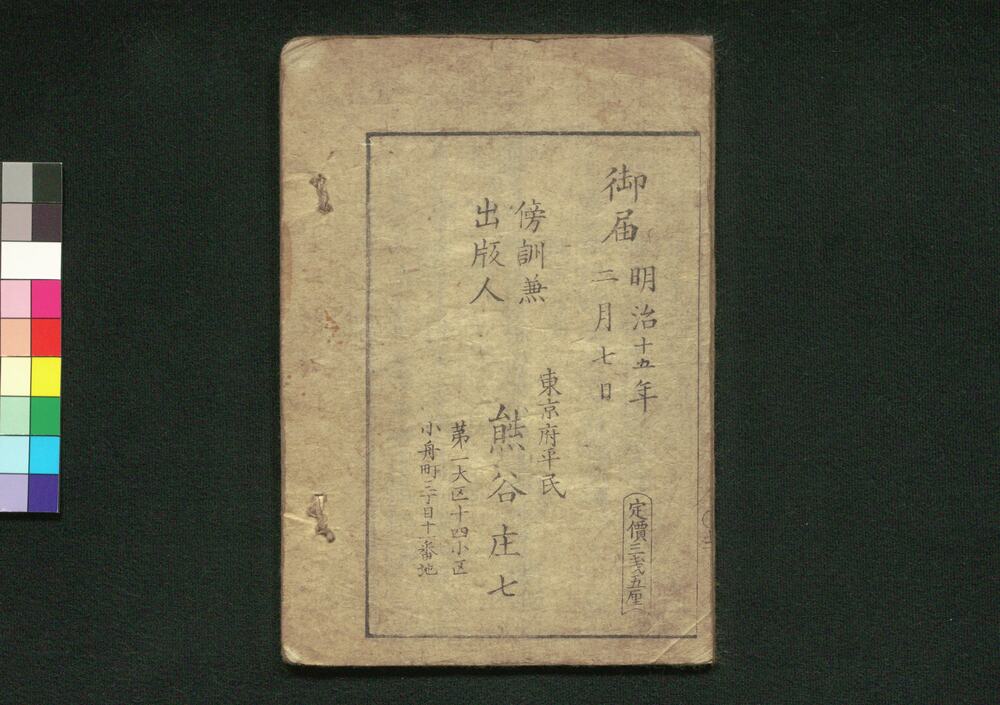 御届
明治十五年
二月七日
定價三銭五厘
傍訓兼
出版人
東京府平民
熊谷庄七
第一大区十四小区
小舟町二丁目十一番地